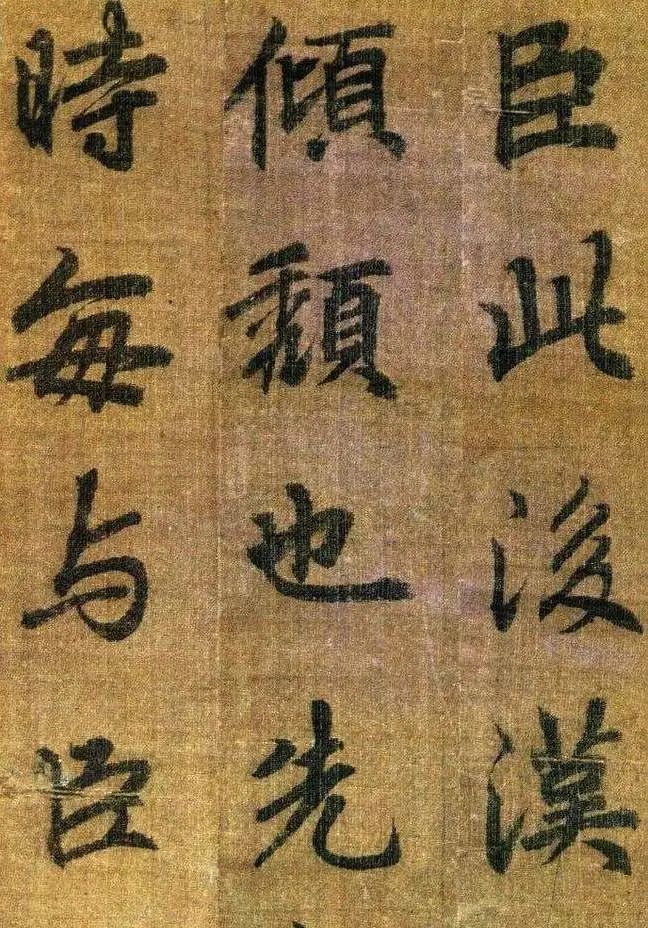 臣此後漢
傾頹也先
時每与臣